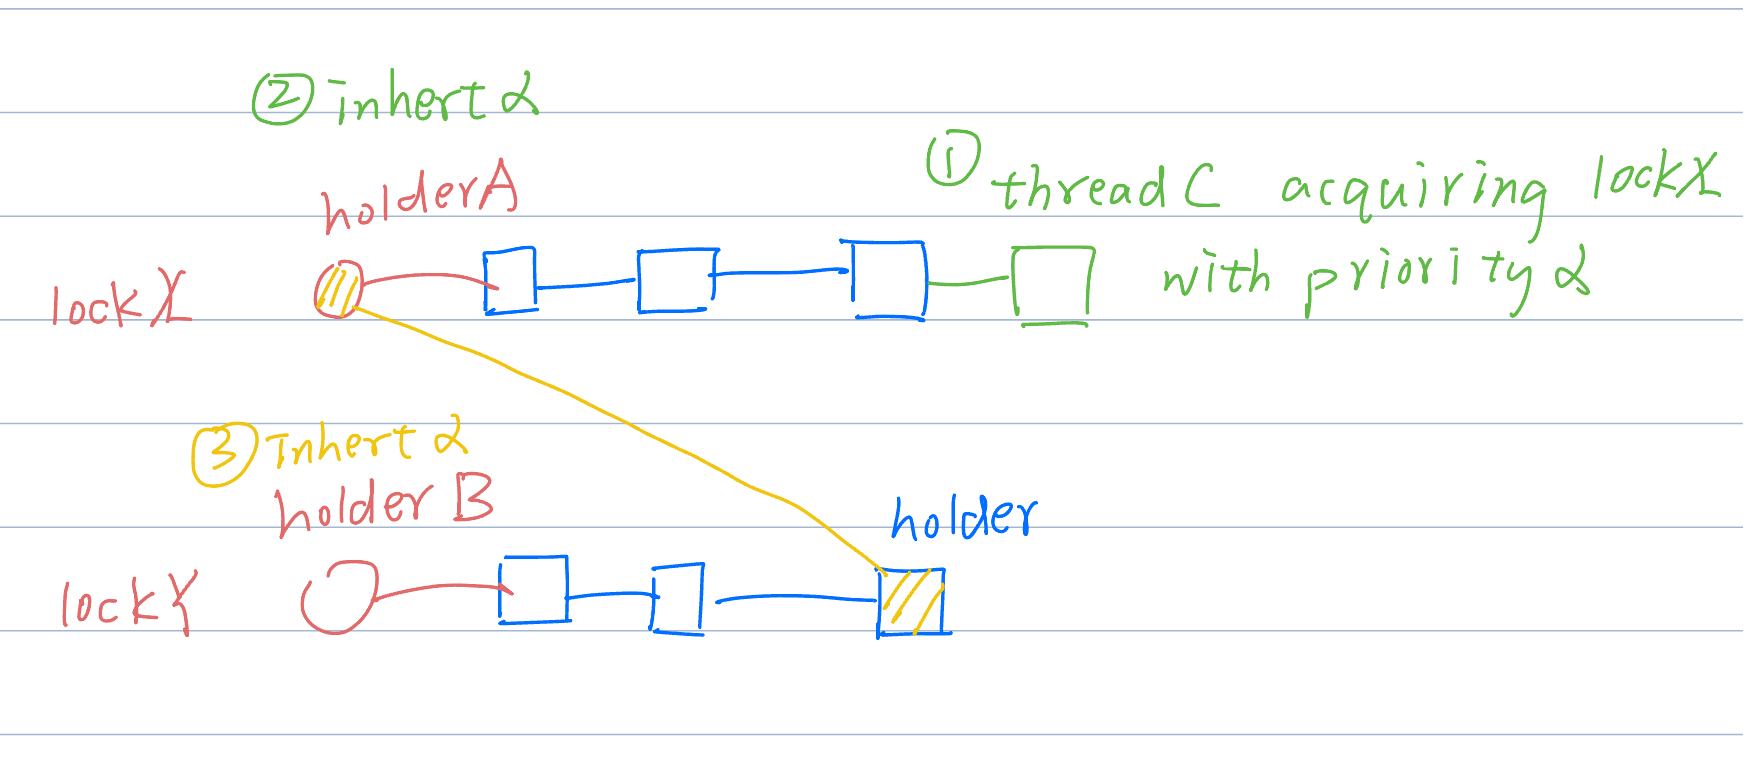 ② inhert α
① thread C acquiring lock X
with priority α
holder A
lock X
③ Inhert α
holder B
holder
lock Y